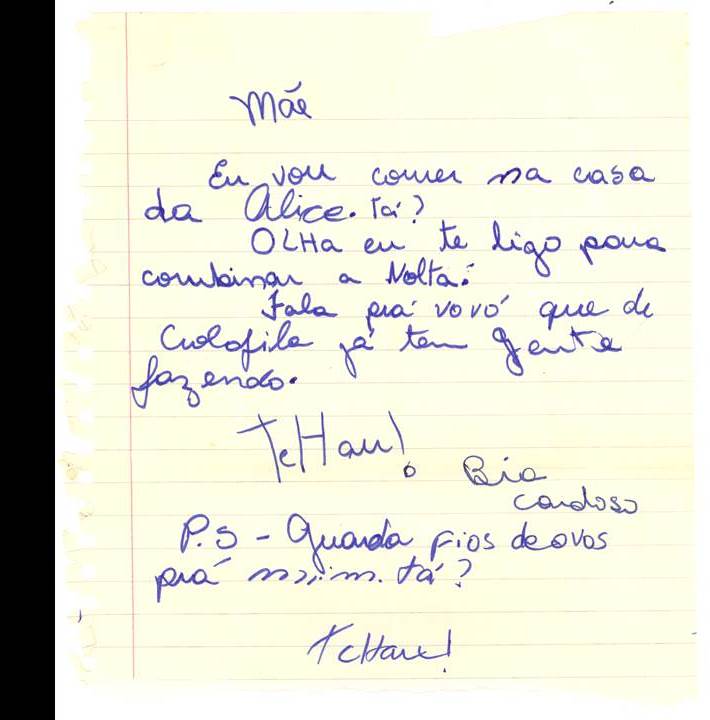 Mãe
Eu vou comer na casa
da Alice. Tá?
OLHa eu te ligo para
combinar a Volta.
Fala prá vovó que de
já tem gente
fazendo.
TcHau!
Bia
Cardoso
P.S - Guarda fios de ovos
prá mim. tá?
TcHau!